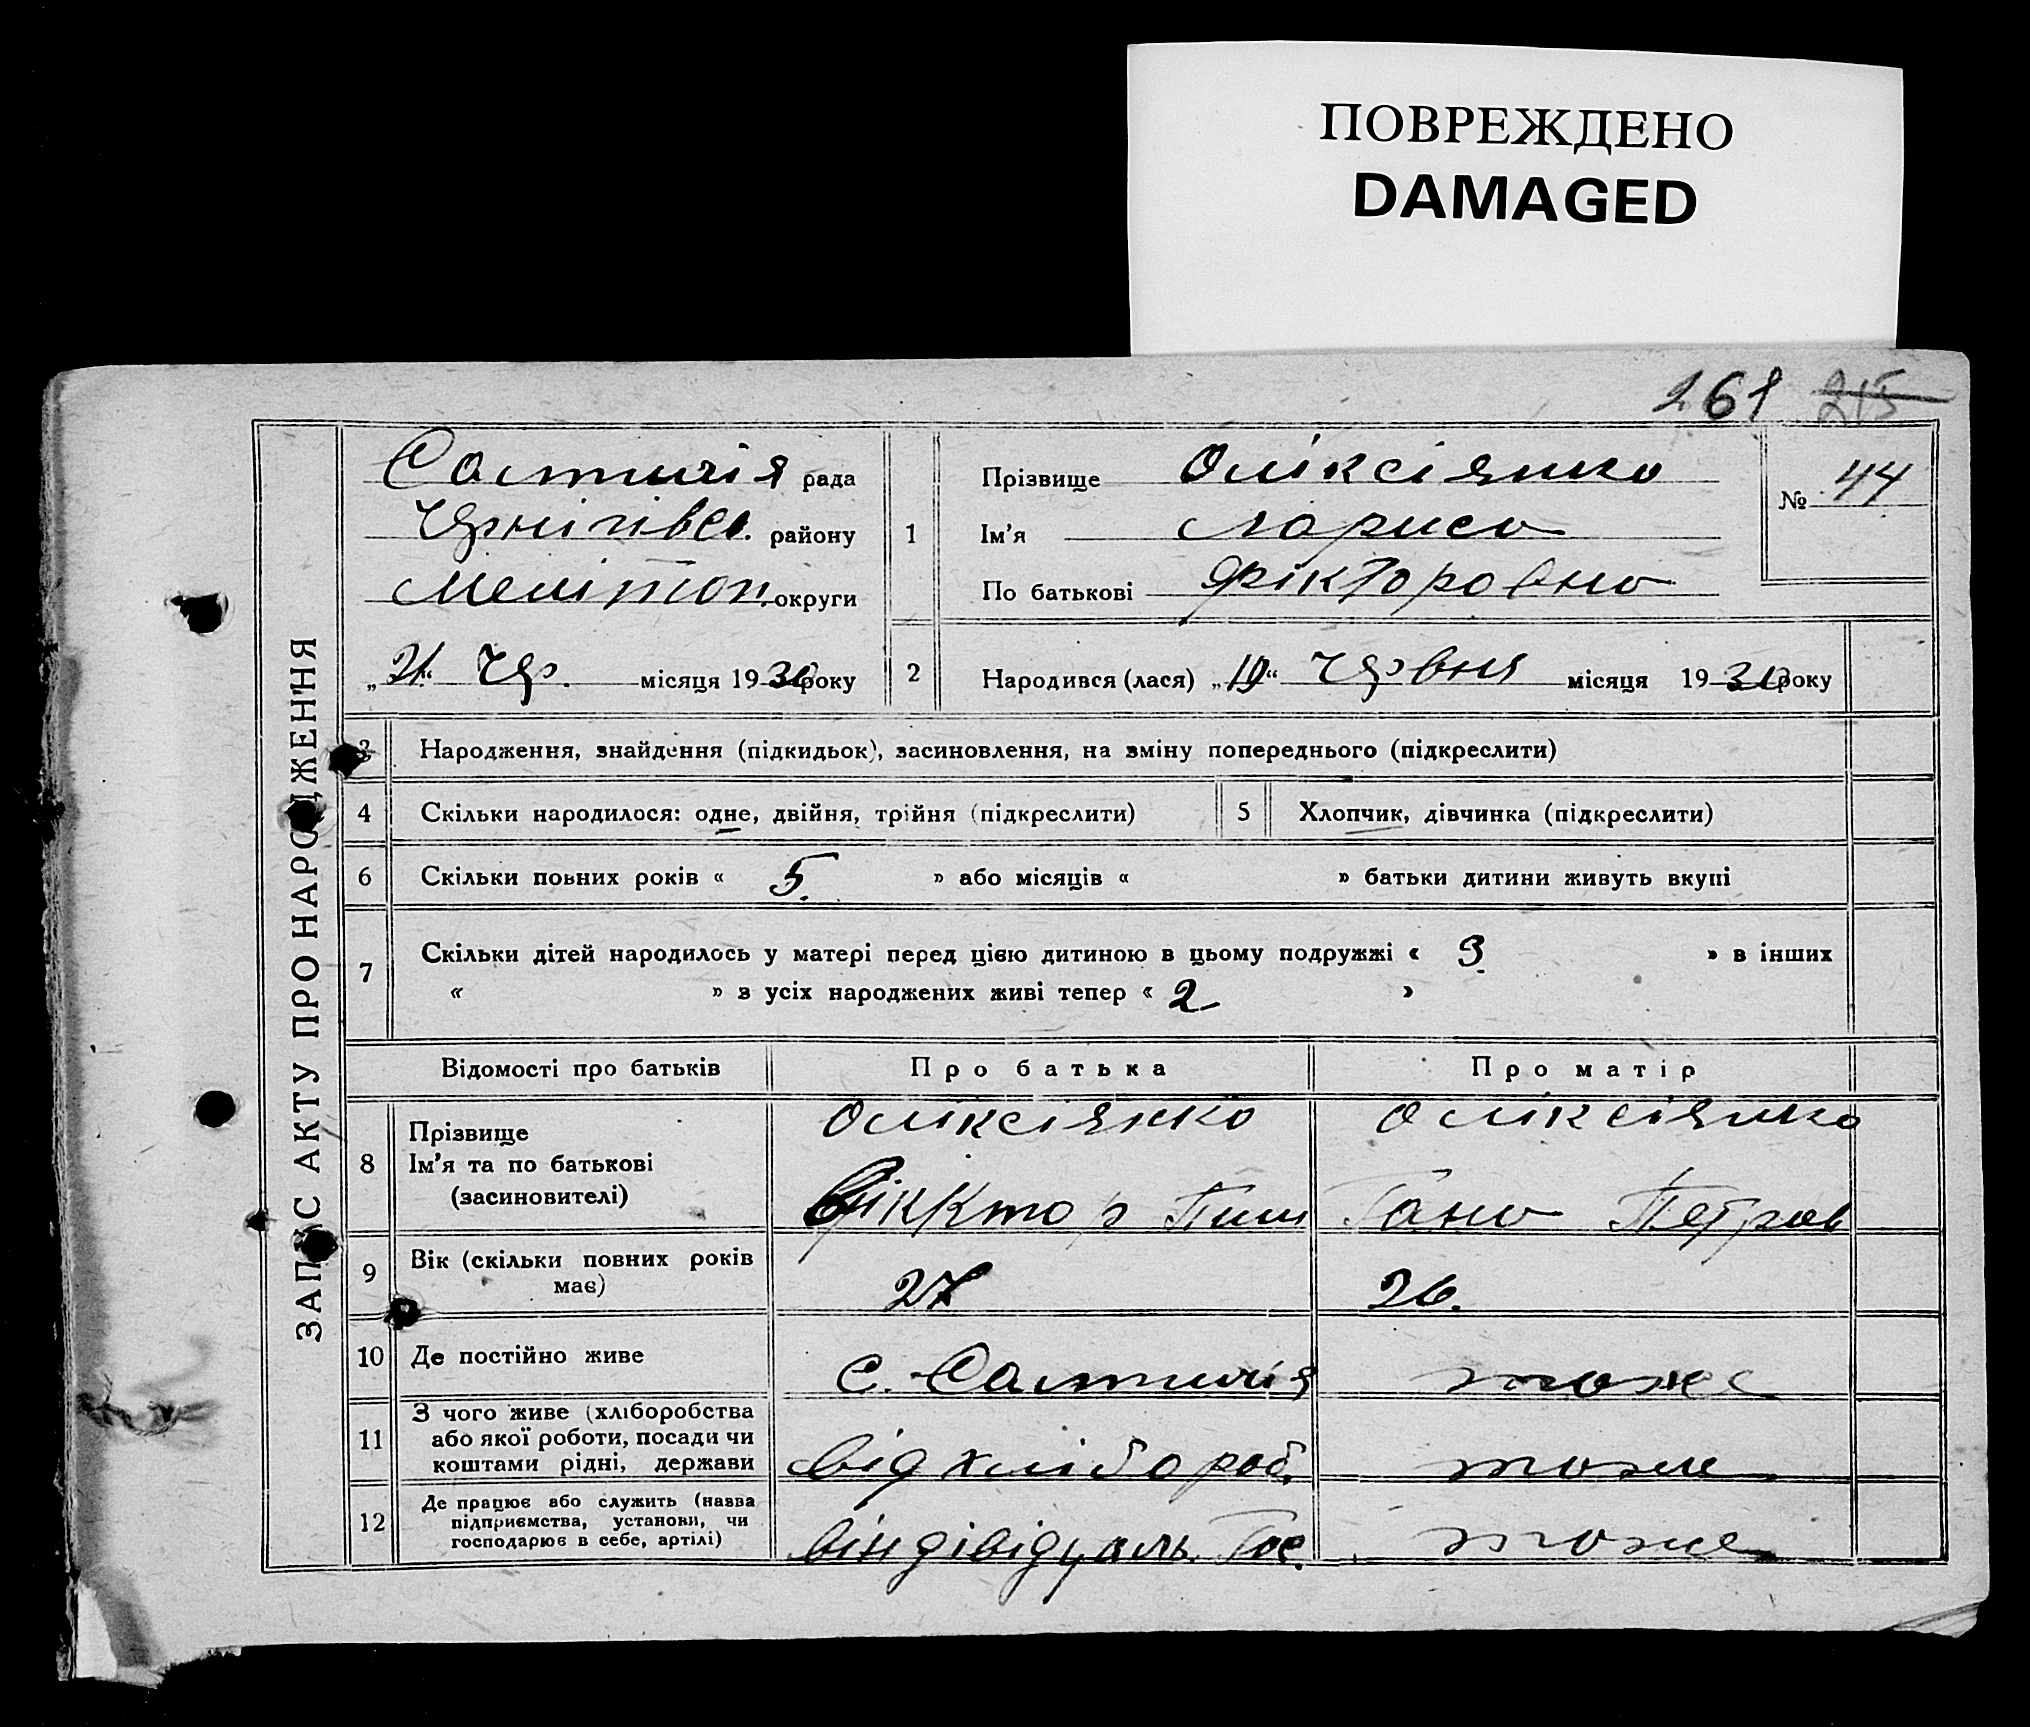 ПОВРЕЖДЕНО
DAMAGED
261 215
ЗАПИС АКТУ ПРО НАРОДЖЕННЯ
Салтичія рада
Чернігівськ. району
Мелітоп. округи
„21“ Чер. місяця 1930 року
1
Прізвище Оліксієнко
Ім'я Лариса
По батькові Вікторовна
№ 44
2
Народився (лася) „19“ Червня місяця 1930 року
3 Народження, знайдення (підкидьок), засиновлення, на зміну попереднього (підкреслити)
4 Скільки народилося: одне, двійня, трійня (підкреслити) 5 Хлопчик, дівчинка (підкреслити)
6 Скільки повних років « 5. » або місяців « » батьки дитини живуть вкупі
7 Скільки дітей народилось у матері перед цією дитиною в цьому подружжі « 3. » в інших
« » з усіх народжених живі тепер « 2 »
Відомості про батьків Про батька Про матір
8 Прізвище
Ім'я та по батькові
(засиновителі)
Оліксієнко
Віккто р
Оліксієнко
Гана Петров
9 Вік (скільки повних років
має)
27
26.
10 Де постійно живе с. Салтичія тоже
11 З чого живе (хліборобства
або якої роботи, посади чи
коштами рідні, держави
від хлібороб. тоже
12 Де працює або служить (назва
підприємства, установи, чи
господарює в себе, артілі)
віндівідуаль. Гос. тоже